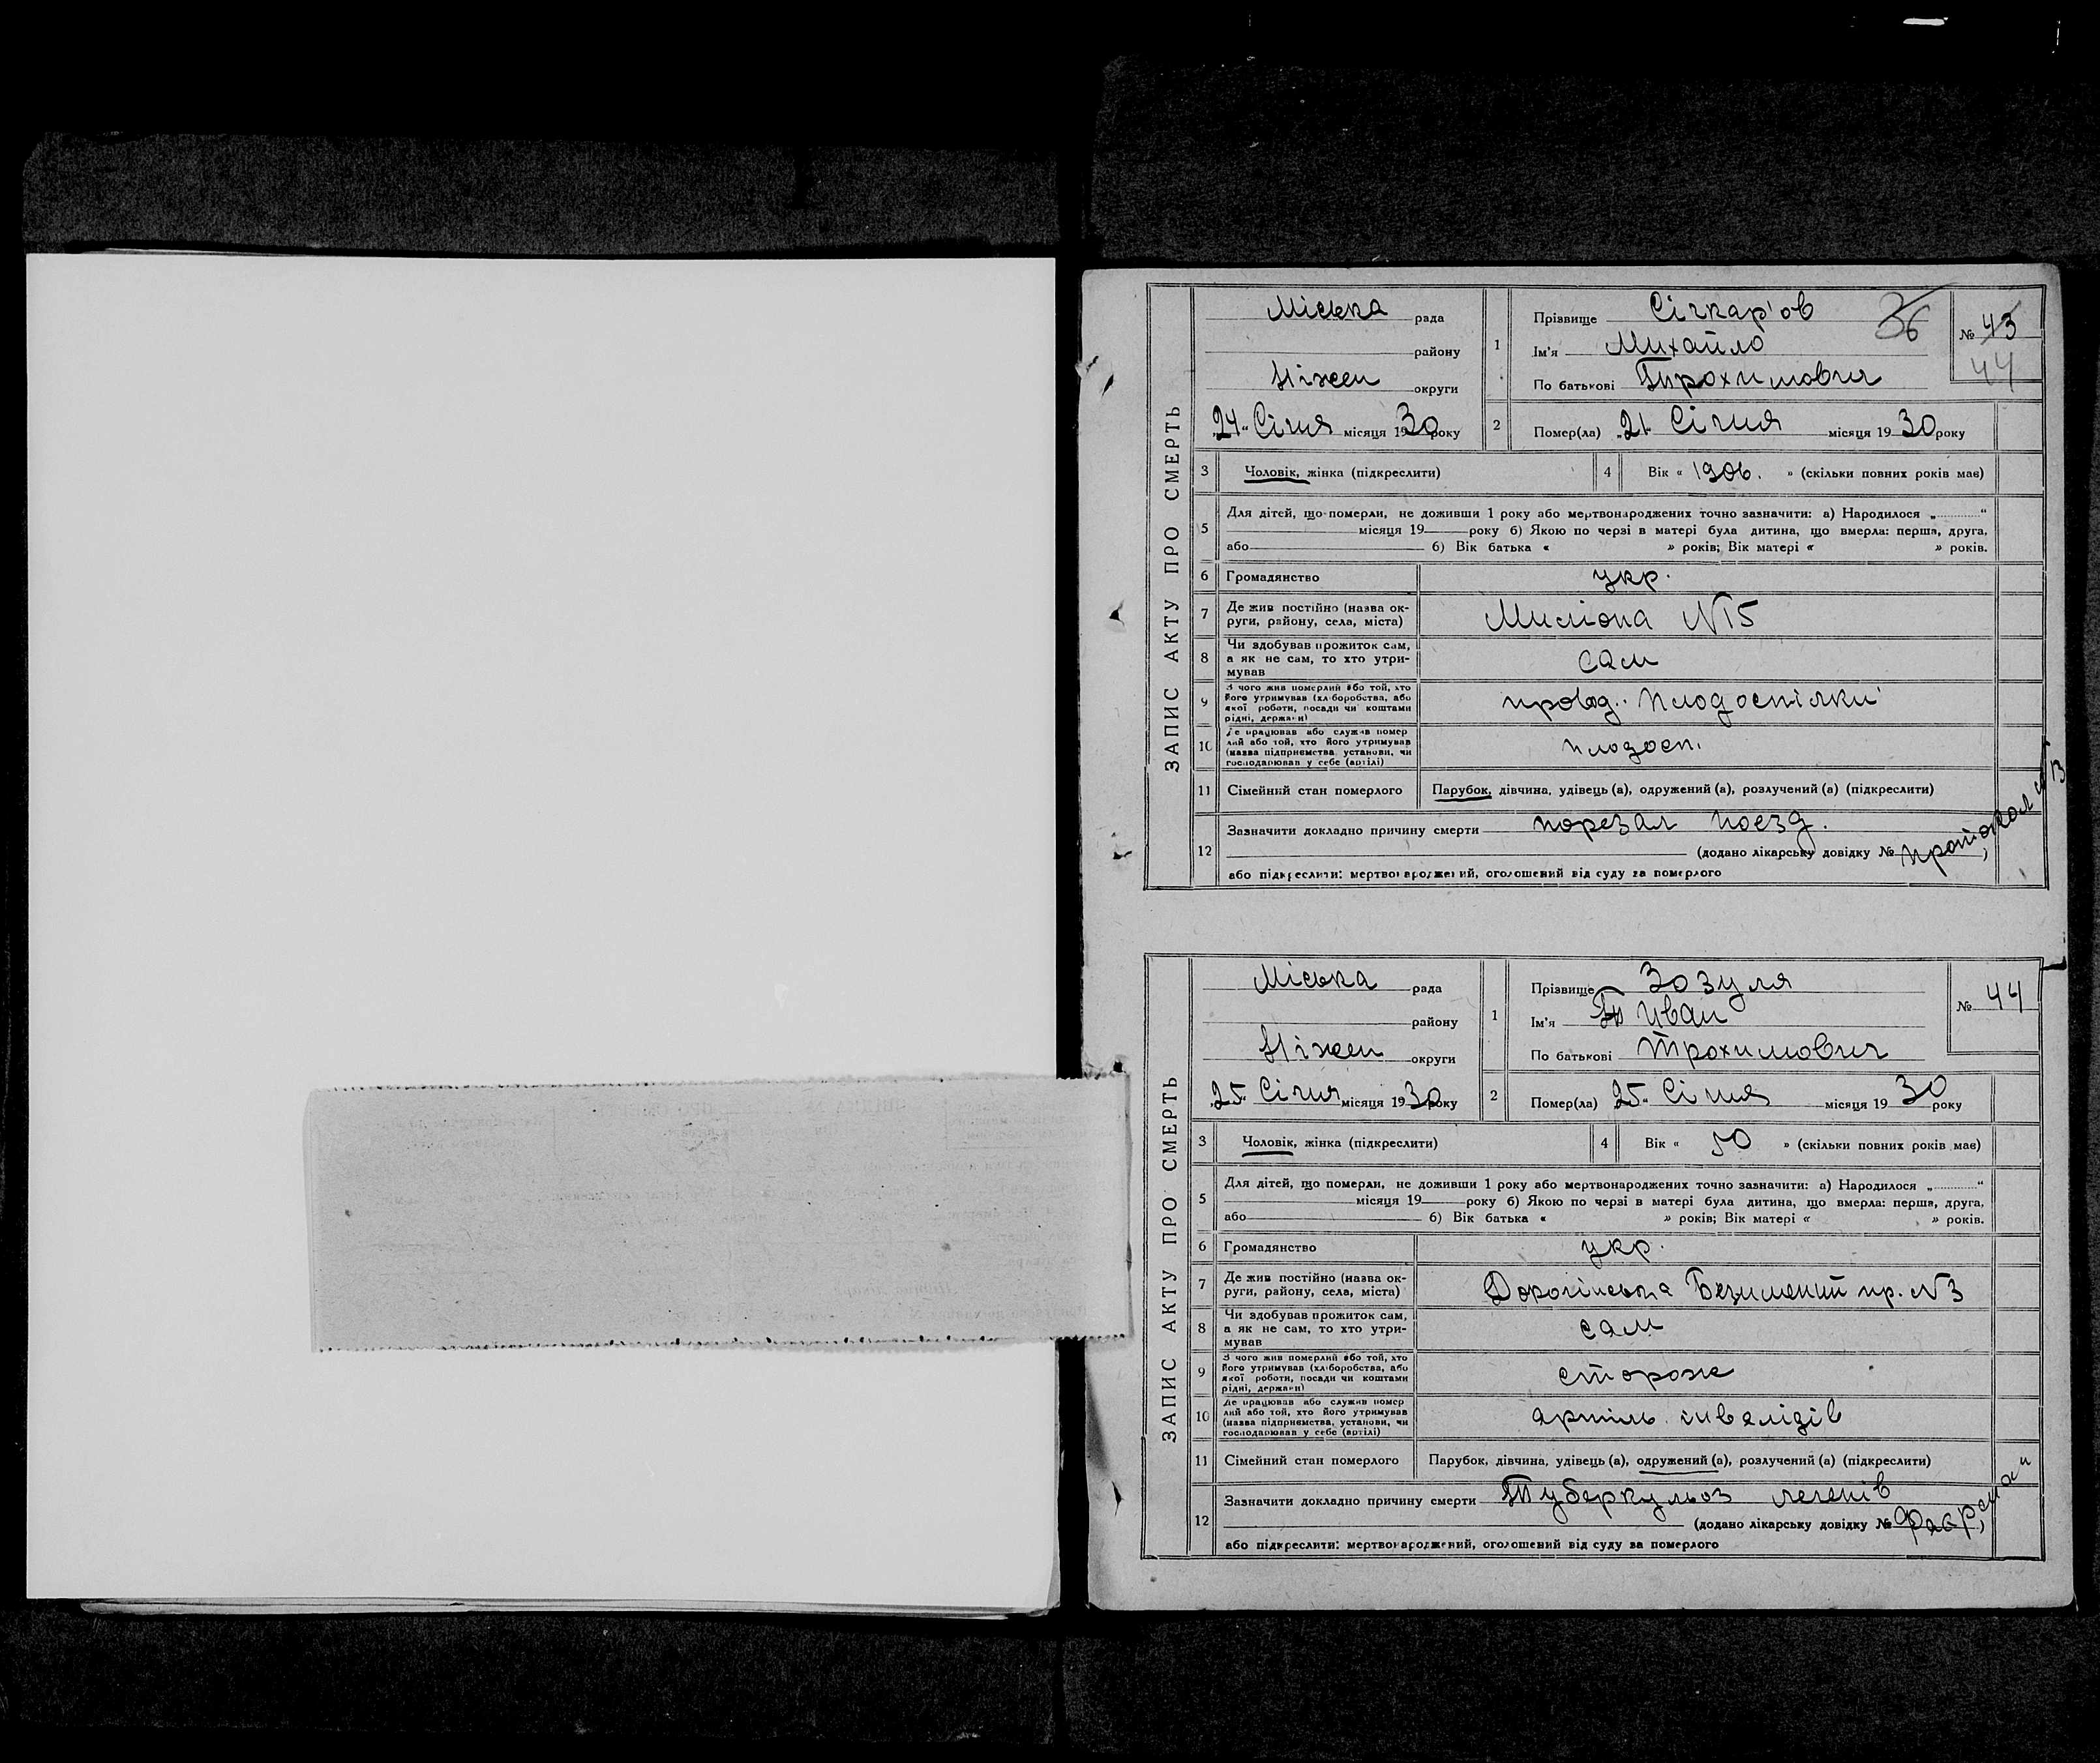 ЗАПИС АКТУ ПРО СМЕРТЬ
Міська рада
району
Ніжен округи
„24“ Січня місяця 1930 року
1
Прізвище Січкар'ов
Ім'я Михайло
По батькові Трохимович
36
№ 43
44
2 Помер(ла) „21“ Січня місяця 1930 року
3 Чоловік, жінка (підкреслити)
4 Вік « 1906. » (скільки повних років має)
5 Для дітей, що померли, не доживши 1 року або мертвонароджених точно зазначити: а) Народилося „ “
місяця 19 року б) Якою по черзі в матері була дитина, що вмерла: перша, друга,
або б) Вік батька « » років; Вік матері « » років.
6 Громадянство укр.
7 Де жив постійно (назва ок-
руги, району, села, міста) N15
8 Чи здобував прожиток сам,
а як не сам, то хто утри-
мував сам
9 З чого жив померлий або той, хто
його утримував (хліборобства, або
якої роботи, посади чи коштами
рідні, держави) Плодоспілки
10 Де працював або служив помер
лий або той, хто його утримував
(назва підприємства, установи, чи
господарював у себе (артілі)
11 Сімейний стан померлого Парубок, дівчина, удівець (а), одружений (а), розлучений (а) (підкреслити)
12 Зазначити докладно причину смерти порезал поезд.
(додано лікарську довідку № протокол )
або підкреслити: мертвонароджений, оголошений від суду за померлого
ЗАПИС АКТУ ПРО СМЕРТЬ
Міська рада
району
Ніжен округи
„25“ Січня місяця 1930 року
1
Прізвище Зозуля
Ім'я Иван
По батькові Трохимович
№ 44
2 Помер(ла) „25“ Січня місяця 1930 року
3 Чоловік, жінка (підкреслити)
4 Вік « 50 » (скільки повних років має)
5 Для дітей, що померли, не доживши 1 року або мертвонароджених точно зазначити: а) Народилося „ “
місяця 19 року б) Якою по черзі в матері була дитина, що вмерла: перша, друга,
або б) Вік батька « » років; Вік матері « » років.
6 Громадянство укр.
7 Де жив постійно (назва ок-
руги, району, села, міста) Дорогінська Безименний пр. N3
8 Чи здобував прожиток сам,
а як не сам, то хто утри-
мував сам
9 З чого жив померлий або той, хто
його утримував (хліборобства, або
якої роботи, посади чи коштами
рідні, держави) сторож
10 Де працював або служив помер
лий або той, хто його утримував
(назва підприємства, установи, чи
господарював у себе (артілі) артіль інвалідів
11 Сімейний стан померлого Парубок, дівчина, удівець (а), одружений (а), розлучений (а) (підкреслити)
12 Зазначити докладно причину смерти Туберкульоз легенів
(додано лікарську довідку № )
або підкреслити: мертвонароджений, оголошений від суду за померлого